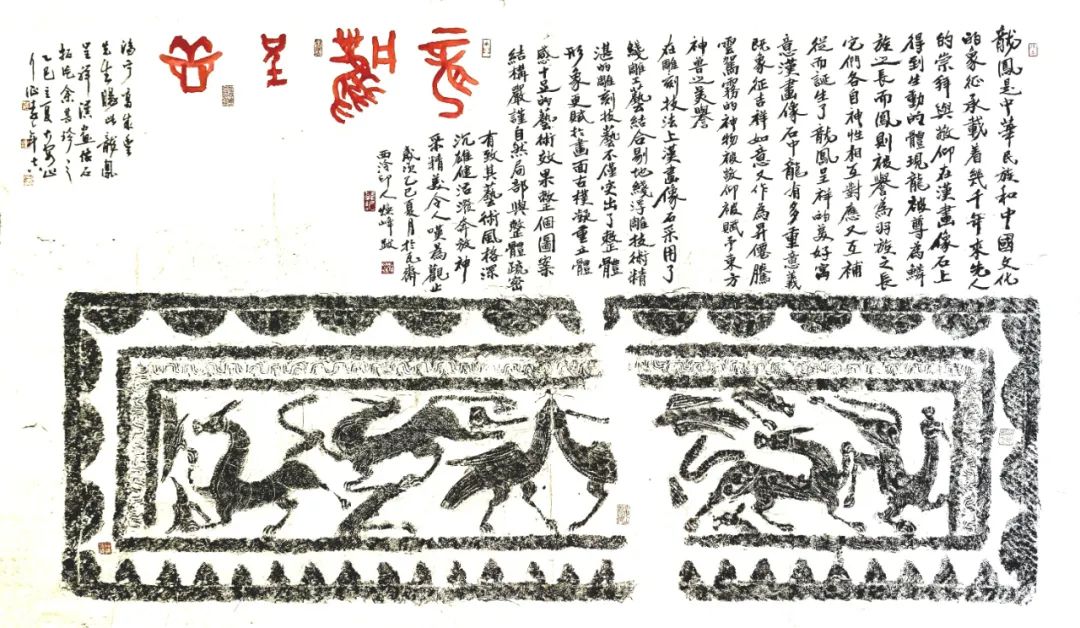 龍鳳是中華民族和中國文化
的象征承載着幾千年來先人
的崇拜與敬仰在漢畫像石上
得到生動的體現龍被尊為鱗
族之長而鳳則被譽為羽族之長
它們各自神性相互對應又互補
從而誕生了龍鳳呈祥的美好寓
意漢畫像石中龍有多重意義
既象征吉祥如意又作為昇僊騰
雲駕霧的神物被敬仰被賦予東方
神兽之美譽
在雕刻技法上漢畫像石采用了
綫雕工藝結合剔地綫浮雕技術精
湛的雕刻技藝不僅突出了整體
形象更賦於畫面古樸凝重立體
感十足的藝術效果整個圖案
結構嚴謹自然局部與整體疏密
有致其藝術風格深
沉雄健活潑奔放神
采精美令人嘆為觀止
歲次乙巳夏月於瓦齋
西泠印人峰跋
龍鳳呈祥
先生龍鳳
呈祥漢畫佳石
拓片余甚珍之
乙巳立夏